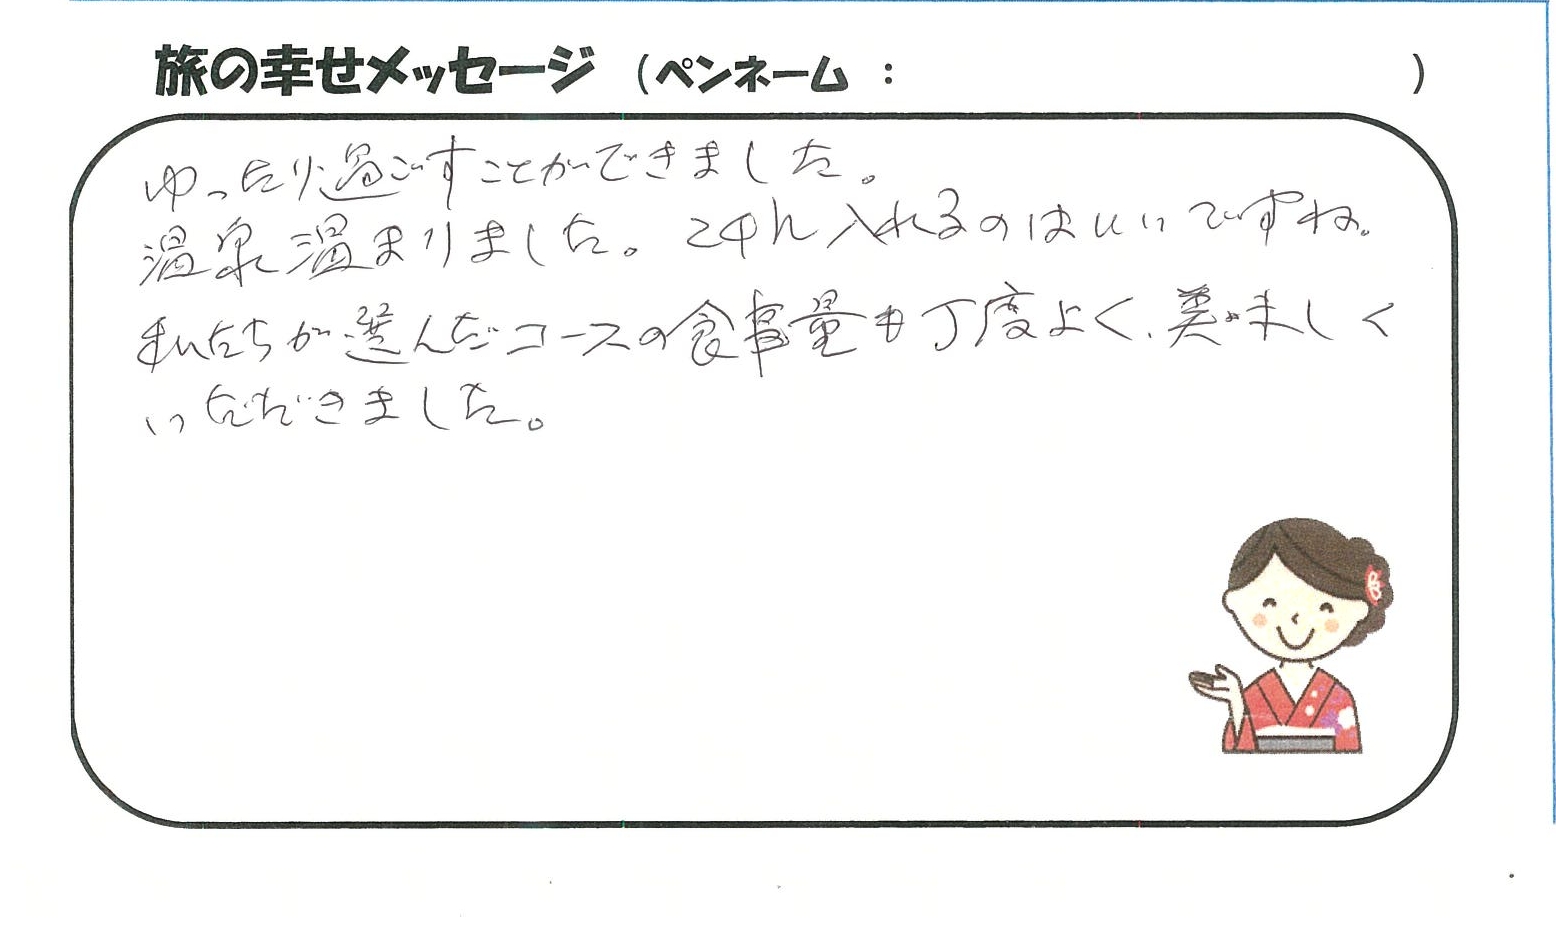 旅の幸せメッセージ (ペンネーム : )
ゆったり過ごすことができました。
温泉温まりました。24h入れるのはいいですね。
私たちが選んだコースの食事量も丁度よく、美味しく
いただきました。